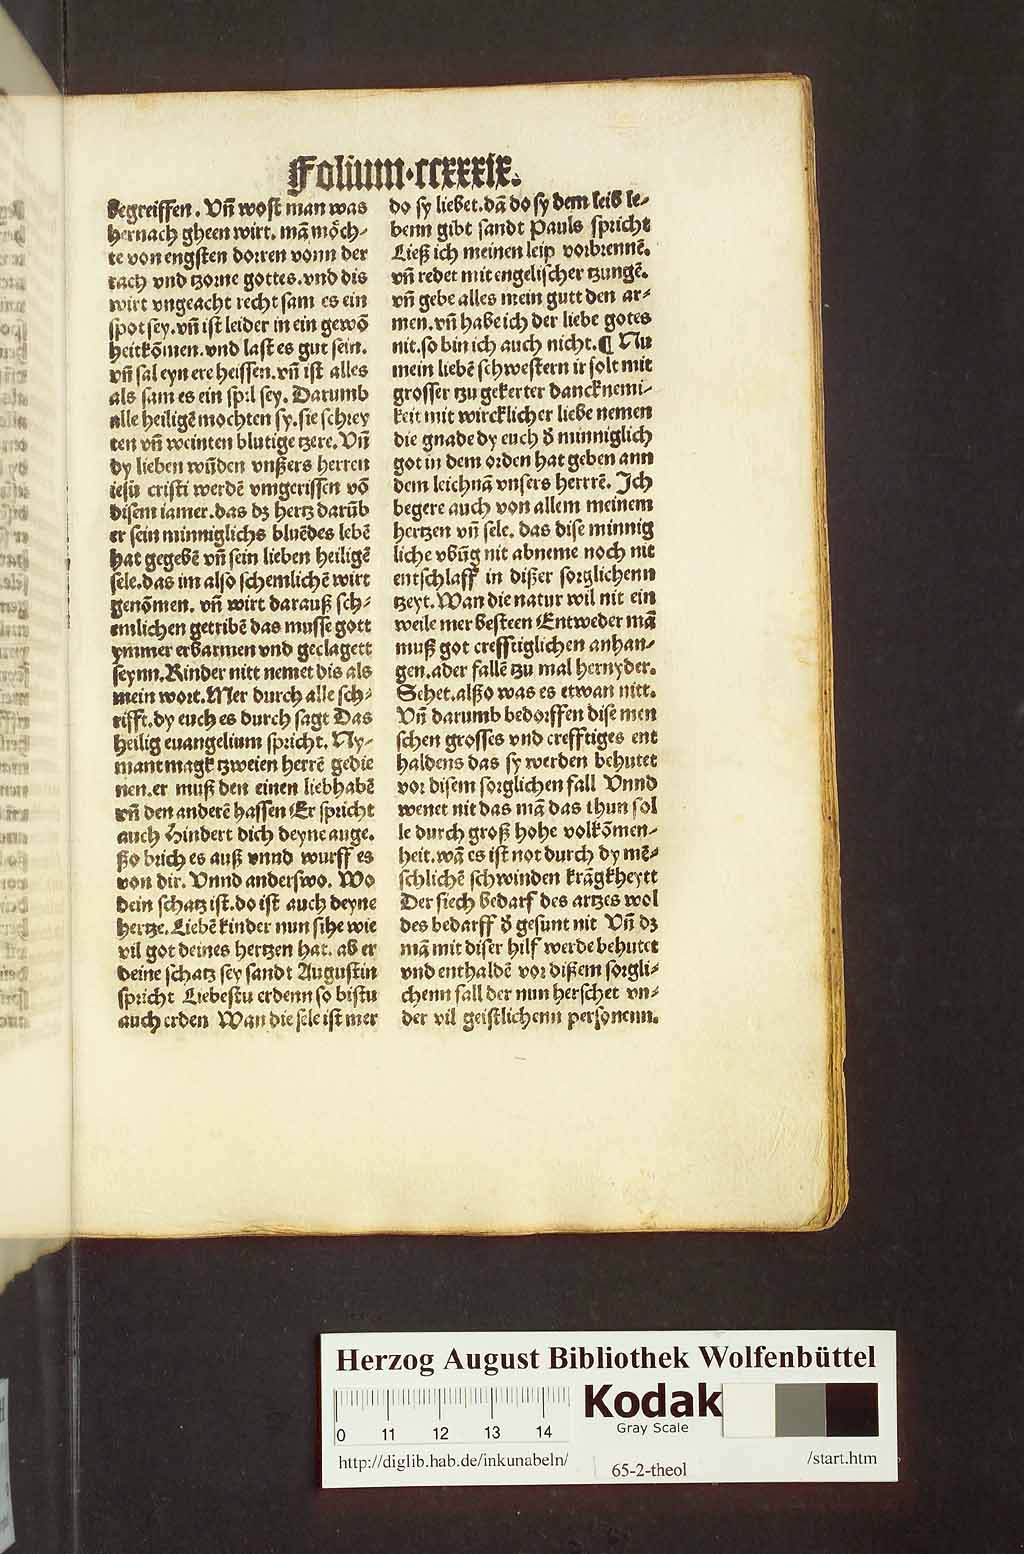 Folium·ccxxxix.
begreiffen. Vn̄ wost man was
hernach gheen wirt. mā möch-
te von engsten dorren vonn der
rach vnd tzorne gottes. vnd dis
wirt vngeacht recht sam es ein
spot sey. vn̄ ist leider in ein gewō
heit kōmen. vnd last es gut sein.
vn̄ sal eyn ere heissen. vn̄ ist alles
als sam es ein spil sey. Darumb
alle heiligē mochten sy. sie schrey
ten vn̄ weinten blutige tzere. Vn̄
dy lieben wūden vnßers herren
iesu cristi werdē vmgerissen vō
disem iamer. das dz hertz darūb
er sein minniglichs bluēdes lebē
hat gegebē vn̄ sein lieben heiligē
sele. das im also schemlichē wirt
genōmen. vn̄ wirt darauß sch-
emlichen getribē das musse gott
ymmer erbarmen vnd geclagett
seynn. Kinder nitt nemet dis als
mein wort. Mer durch alle sch-
rifft. dy euch es durch sagt Das
heilig euangelium spricht. Ny-
mant magk tzweien herrē gedie
nen. er muß den einen liebhabē
vn̄ den anderē hassen Er spricht
auch Hindert dich deyne auge.
ßo brich es auß vnnd wurff es
von dir. Vnnd anderswo. Wo
dein schatz ist. do ist auch deyne
hertze. Liebē kinder nun sihe wie
vil got deines hertzen hat. ab er
deine schatz sey sandt Augustin
spricht Liebestu erdenn so bistu
auch erden Wan die sele ist mer
do sy liebet. dā do sy dem leib le-
benn gibt sandt Pauls spricht
Ließ ich meinen leip vorbrennē.
vn̄ redet mit engelischer tzungē.
vn̄ gebe alles mein gutt den ar-
men. vn̄ habe ich der liebe gotes
nit. so bin ich auch nicht. ¶ Nu
mein liebē schwestern ir solt mit
grosser tzu gekerter dancknemi-
keit mit wircklicher liebe nemen
die gnade dy euch d̕ minniglich
got in dem orden hat geben ann
dem leichnā vnsers herrrē. Ich
begere auch von allem meinem
hertzen vn̄ sele. das dise minnig
liche vbūg nit abneme noch nit
entschlaff in dißer sorglichenn
tzeyt. Wan die natur wil nit ein
weile mer besteen Entweder mā
muß got crefftiglichen anhan-
gen. ader fallē tzu mal hernyder.
Sehet. alßo was es etwan nitt.
Vn̄ darumb bedorffen dise men
schen grosses vnd crefftiges ent
haldens das sy werden behutet
vor disem sorglichen fall Vnnd
wenet nit das mā das thun sol
le durch groß hohe volkōmen-
heit. wā es ist not durch dy mē-
schlichē schwinden krāgkheytt
Der siech bedarf des artzes wol
des bedarff d̕ gesunt nit Vn̄ dz
mā mit diser hilf werde behutet
vnd enthaldē vor dißem sorgli-
chenn fall der nun herschet vn-
der vil geistlichenn personenn.
Herzog August Bibliothek Wolfenbüttel
Kodak
Gray Scale
0 11 12 13 14
http://diglib.hab.de/inkunabeln/
65-2-theol
/start.htm